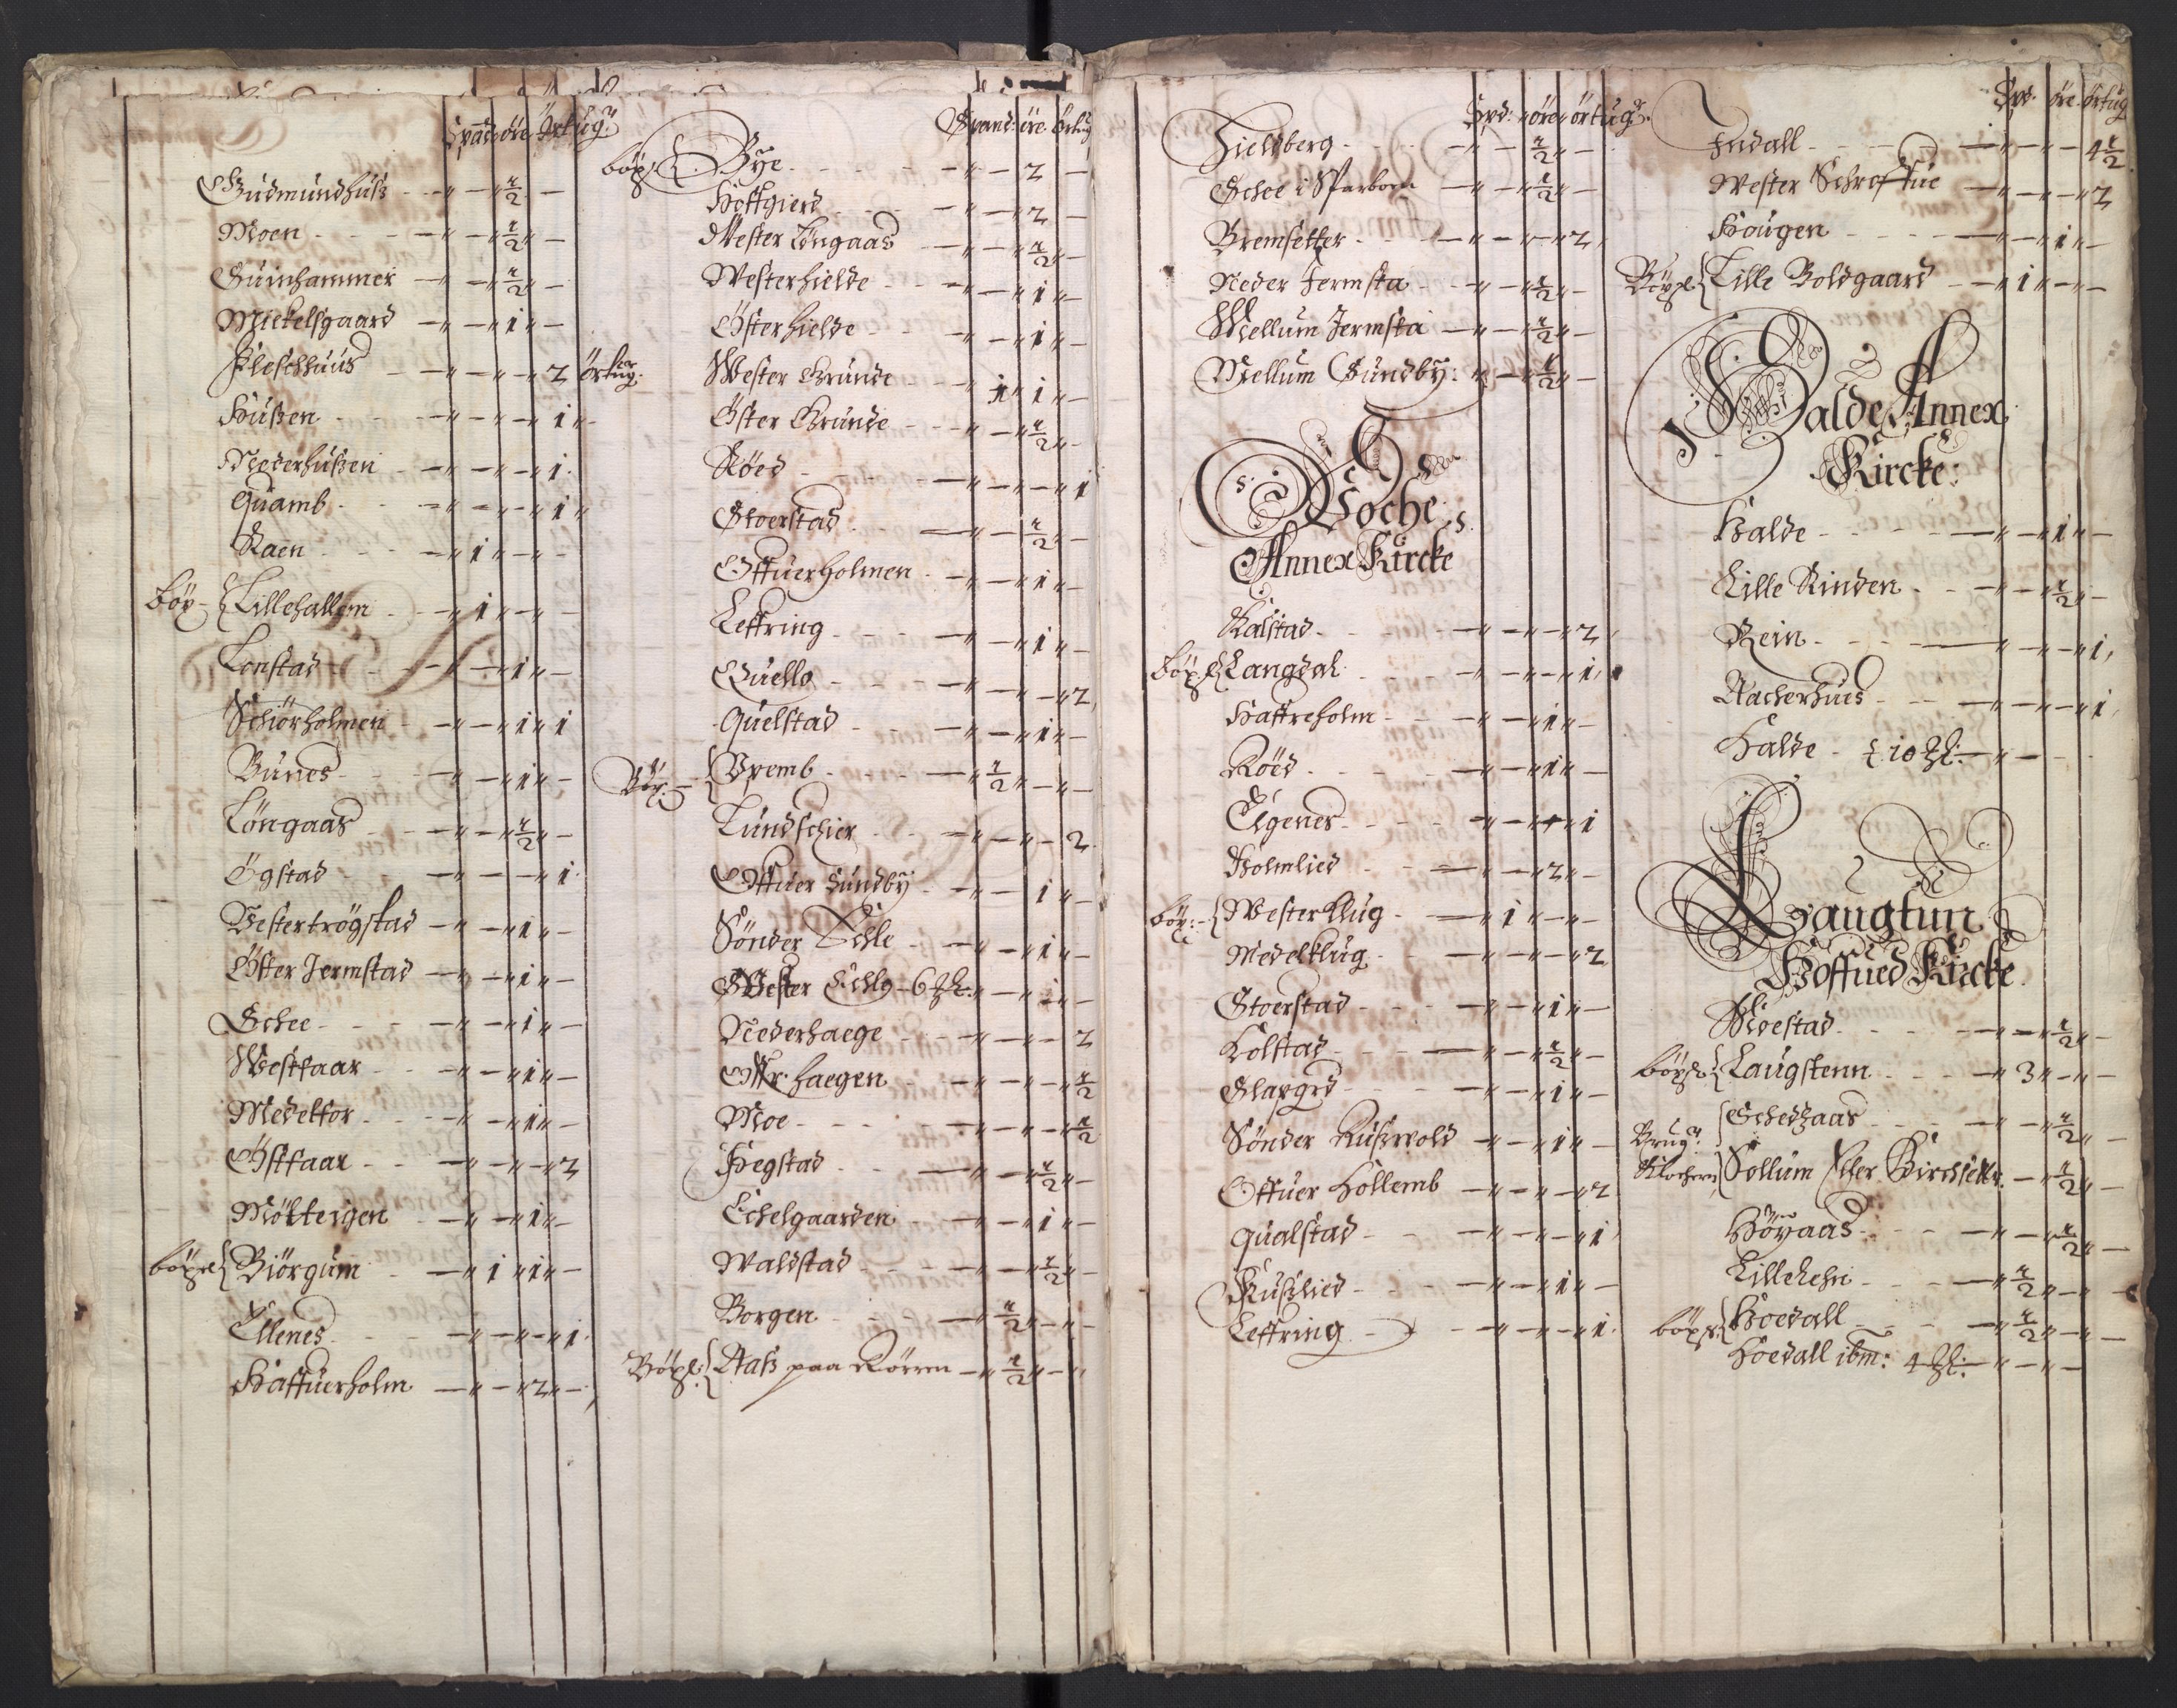 Spand öre Örtug:
Gudmundhuß - - " - " ½ " -
Moen - - - " - " ½ " -
Guinhammer - " - " ½ " -
Mickelsgaard - " - " 1 " -
Fleschhuus - " - " - " 2 örtug:
Hußen - - - " - " - " 1 "
Nederhußen - " - " - " 1
Quamb - - " - " - " 1 "
Raen - - - " 1 " - " -
böx - { Lillehallem - - " 1 " - " -
Lonstad - - - " - " 1 " -
Schiörholmen - " - " 1 " 1
Bunes - - - " - " 1 " -
Löngaas - - " - " ½ " -
Ögstad - " - " - " 1
Vestertrögstad - " - " 1 " -
Öster Jermstad - " - " 1 " -
Schee - - - " - " 1 " -
Westfaar - - " - " 1 " -
Medelfor - - " - " 1 " -
Östfaar - - " - " - " 2
Mökleigen - " - " 1 " -
böxel { Biörgum - " 1 " 1 " -
Ellenes - - - " - " - " 1
Haffuerholm - " - " 2 " -
Spand: öre Örtug
böx { Bye - - - " - 2 -
Hoffgierd - - " - " 2 -
Wester Löngaas - " - " ½ " -
Westerhielde - - " - " 1 " -
Österhielde - - " - " 1 " -
Wester Grunde - " 1 " 1 " -
Öster Grunde - - " - " ½ " -
Röed - - - " - " - " 1
Stoerstad - - " - " ½ " -
Offuerholmen - " - " 1 " -
Leffring - - " - " 1 " -
Quello - - - " - " - 2
Quelstad - - " - " 1 " -
Böx: { Vpemb - - - " ½ " - " -
Lundschier - - " - " - 2
Offuer Sundby - " - 1 " -
Sönder Echle - " - " 1 " -
Wester Echle - 6 Ↄ: " - " 1 " -
Nederhaege - - " - " - 2
Offr. haegen - - " - " - " ½
Moe - - - - " - " - " ½
Hegstad - - " - " ½ " -
Echelgaarden - " - " 1 " -
Waldstad - - " - " ½ " -
Borgen - - - " ½ " - " -
Böxl: { Aaß paa Körrem - " ½ " - "
Spd: öre örtug:
Fieldberg - - - " - " ½ " -
Schee i Sparboen - " - " ½ " -
Bremsetter - - " - " - " 2
Neder Jermsta - " - " ½ " -
Mellum Jermsta - " - " ½ " -
Mellum Sundby: " - " ½ " -
Foche
Annex Kircke
Kalstad - - - " - " - " 2
böxl { Langdal - - " - " - " 1
Haffreholm - - " - " 1 " -
Röed - - - " - " 1 " -
Elgenes - - - " - " - " 1
Holmlied - - " - " 2 " -
böx: { Wester Klug - " 1 " - " -
Medelklug - - " - " - " 2
Stoerstad - - " - " 1 " -
Kolstad - - " - " ½ " -
Glapgrd - - " - " 1 " -
Sönder Kußwold - " - " 1 " -
Offuer Hollemb - " - " - " 2
Qualstad - - " - " - " 1
Kußlied - - " - " 1 " -
Leffring - - " - " - " 1
Spd. öre. Örtug
Indall - - - " - " - 4½
Wester Schrefstue - " - " - " 2
Hougen - - - " - " 1 " -
Böxl { Lille Boldgaard - " 1 " - " -
Halde Annex
Kircke:
Halde - - - " - " 1 " -
Lille Rinden - - " - " ½ " -
Rein - - - " - " - " 1
Aacherhues - - " - " - " 1
Halde - { 10 Ↄ: - " - - -
Laugtun
Hoffued Kircke
Mestad - - - " - " ½ " -
böxl { Laugstenn - - " 3 " - " -
Schedzaas - - " - " ½ " -
Brug:
Klochern Sollum - " ½ " -
Höyaas - - - " - " ½ " -
Lillelehn - - " ½ " - " -
böxl { Hoedall - - - " ½ " - " -
Hoedall ibm: 4 Ↄ: " - " -